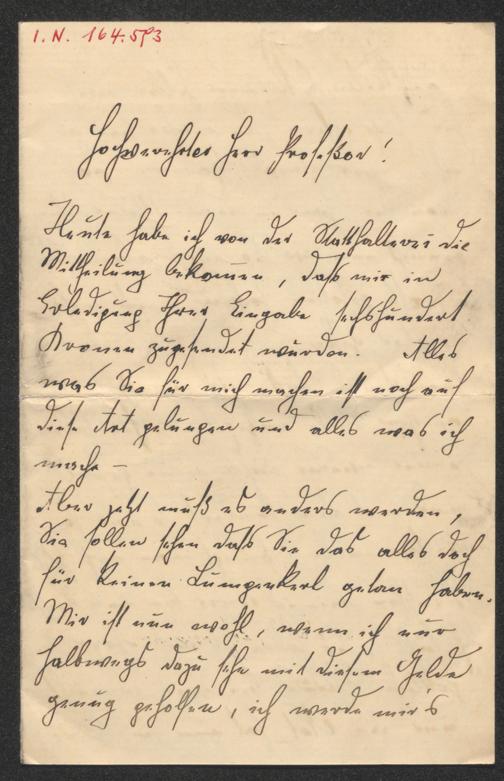 I. N. 164.573
Hochverehrter Herr Professor!
Heute habe ich von der Statthalterei die
Mittheilung bekommen, daß mir in
Erledigung Ihrer Eingabe sechshundert
Kronen zugesendet wurden. Alles
was Sie für mich machen ist noch auf
diese Art gelungen und alles was ich
mache –
Aber jetzt muß es anders werden,
Sie sollen sehen daß Sie das alles doch
für keinen Lumpenkerl getan haben.
Mir ist nun wohl, wenn ich nur
halbwegs dazu sehe mit diesem Gelde
genug geholfen, ich werde mir's